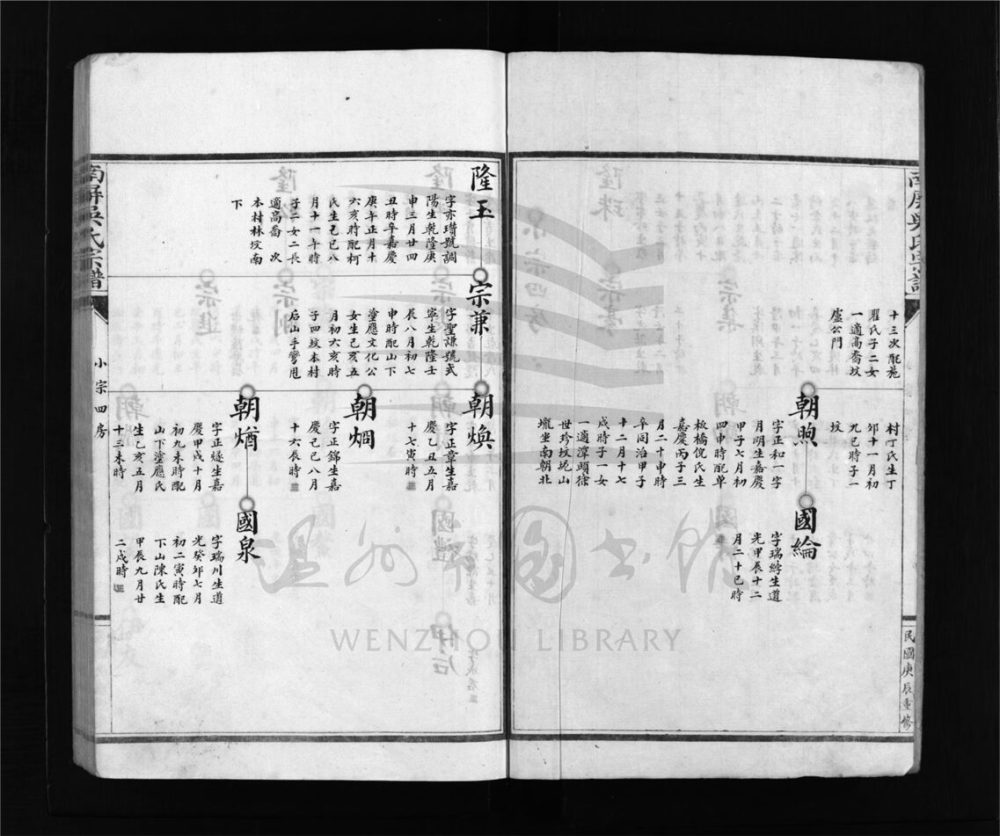 南屏吳氏宗譜
民國庚辰重修
十三次配苑
瞿氏子二女
一適高喬坟
盧公門
村丁氏生丁
卯十一月初
九巳時子一
坟
朝煦
字正和一字
月明生嘉慶
甲子七月初
四申時配單
板橋倪氏生
嘉慶丙子三
月二十申時
卒同治甲子
十二月十七
戌時子一女
一適潭頭徐
世珍坟垅山
壠坐南朝北
國綸
字瑞綍生道
光甲辰十二
月二十巳時
隆玉
字亦瓚號調
陽生乾隆庚
申三月廿四
丑時卒嘉慶
庚午正月十
六亥時配柯
氏生己巳八
月十一午時
子二女二長
適高喬次
本村林坟南
下
宗兼
字聖謙號武
寧生乾隆壬
辰八月初七
申時配山下
塗應文化公
女生己亥五
月初六亥時
子四坟本村
后山手寶甩
朝煥
字正章生嘉
慶乙丑五月
十七寅時
朝烱
字正錦生嘉
慶己巳八月
十六辰時
朝煪
字正燧生嘉
慶甲戌十月
初九未時配
山下塗應氏
生乙亥五月
十三未時
國泉
字瑞川生道
光癸卯七月
初二寅時配
下山陳氏生
甲辰九月廿
二戌時
南屏吳氏宗譜
小宗四房
溫州市圖書館
WENZHOU LIBRARY